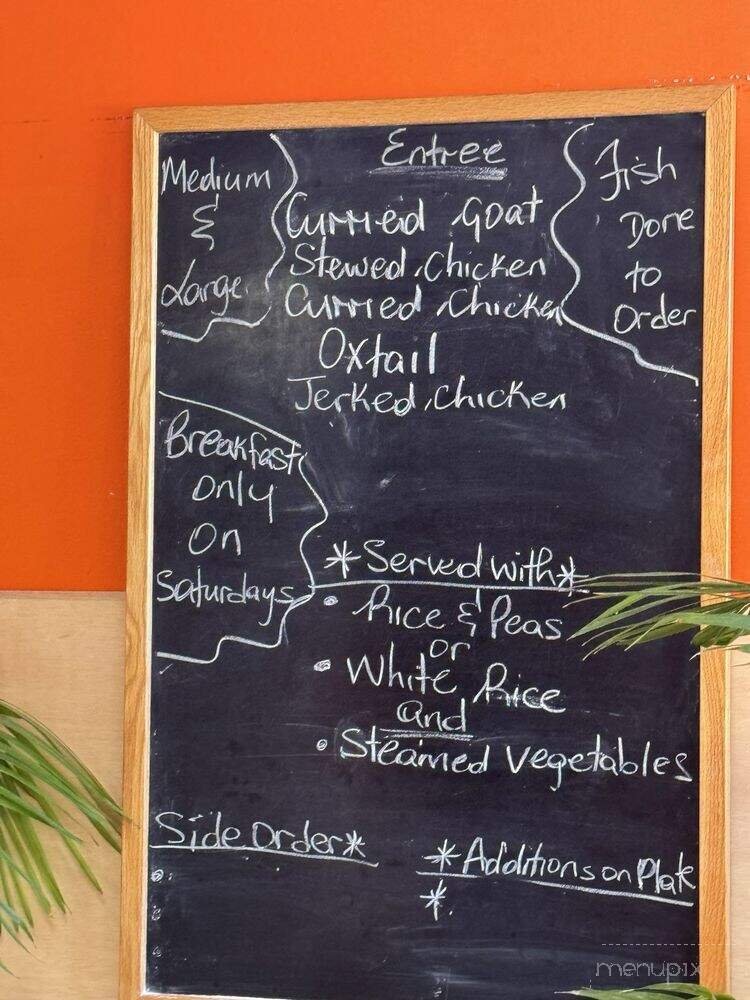 Entree
Medium
&
Large
Curried Goat
Stewed Chicken
Curried Chicken
Oxtail
Jerked Chicken
Fish
Done
to
Order
Breakfast
Only
On
Saturdays
*Served with*
• Rice & Peas
or
• White Rice
and
• Steamed Vegetables
Side Order*
*Additions on Plate
*
menupix